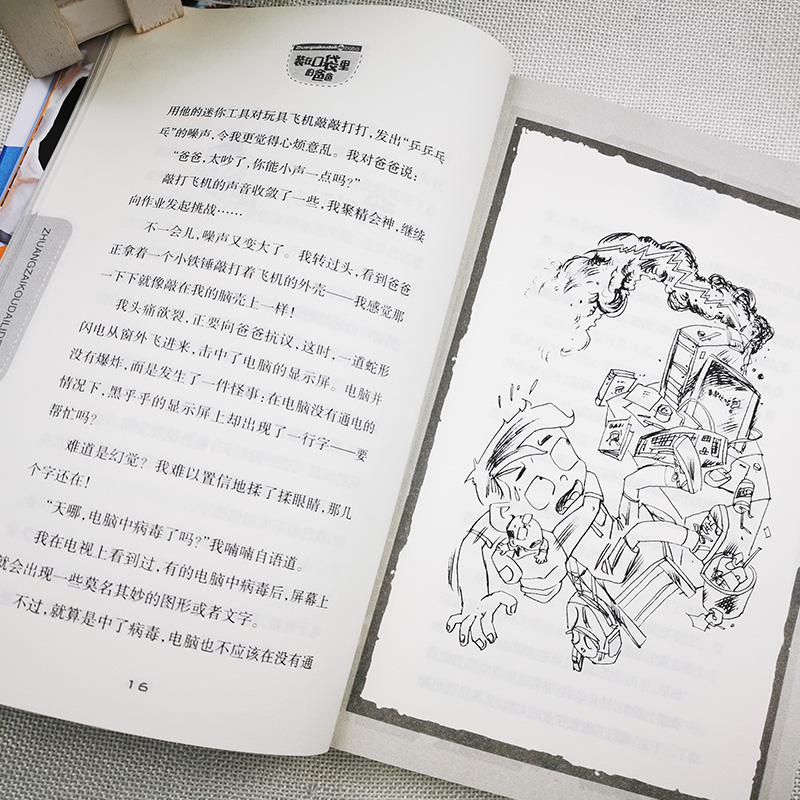 Zhuangzaikoudaili de baba
装在口袋里
的爸爸
用他的迷你工具对玩具飞机敲敲打打，发出“乒乒乓
乓”的噪声，令我更觉得心烦意乱。我对爸爸说：
“爸爸，太吵了，你能小声一点吗？”
敲打飞机的声音收敛了一些，我聚精会神，继续
向作业发起挑战……
不一会儿，噪声又变大了。我转过头，看到爸爸
正拿着一个小铁锤敲打着飞机的外壳——我感觉那
一下下就像敲在我的脑壳上一样！
我头痛欲裂，正要向爸爸抗议，这时，一道蛇形
闪电从窗外飞进来，击中了电脑的显示屏。电脑并
没有爆炸，而是发生了一件怪事：在电脑没有通电的
情况下，黑乎乎的显示屏上却出现了一行字——要
帮忙吗？
难道是幻觉？我难以置信地揉了揉眼睛，那几
个字还在！
“天哪，电脑中病毒了吗？”我喃喃自语道。
我在电视上看到过，有的电脑中病毒后，屏幕上
就会出现一些莫名其妙的图形或者文字。
不过，就算是中了病毒，电脑也不应该在没有通
16
ZHUANGZAIKOUDAILIDE